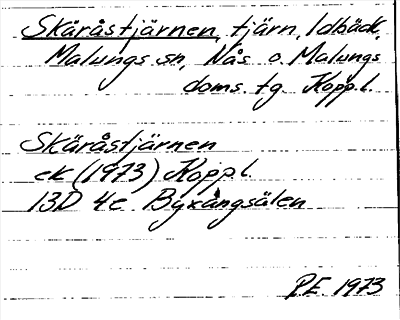 Skäråstjärnen, tjärn, Idbäck,
Malungs sn, Nås o. Malungs
doms. tg. Kopp.l.
Skäråstjärnen
ek (1973) Kopp.l.
13D 4e Byxängsälen
P.E. 1973